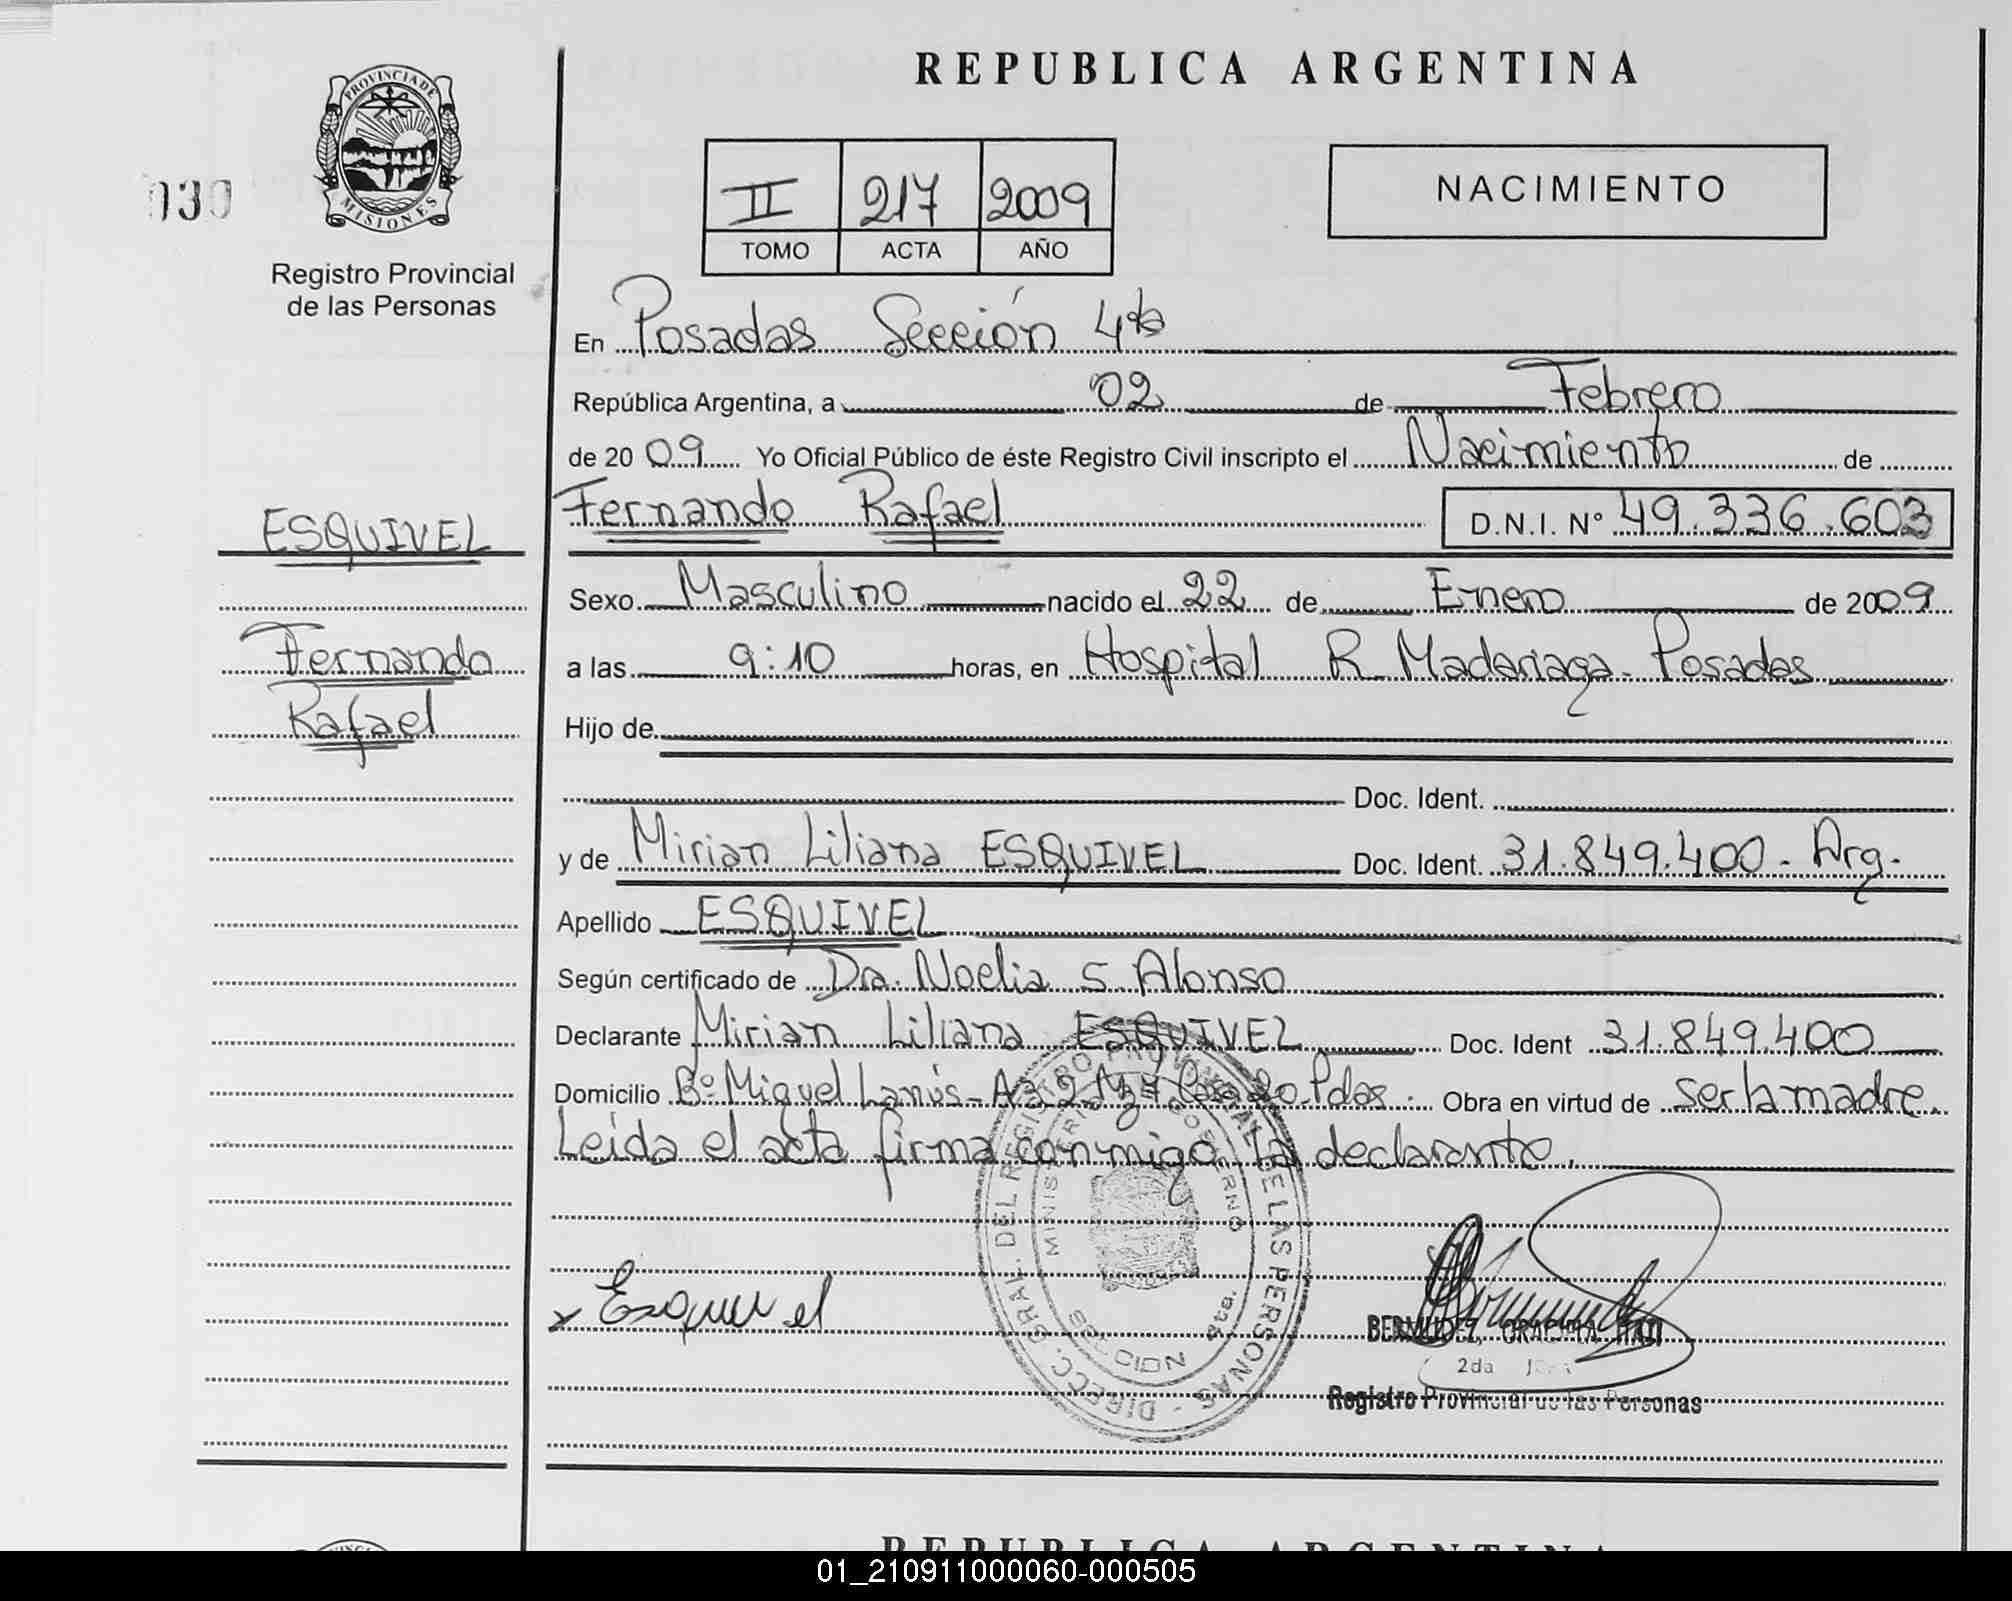 REPUBLICA ARGENTINA
PROVINCIA DE
MISIONES
030
Registro Provincial
de las Personas
II 217 2009
TOMO ACTA AÑO
NACIMIENTO
En Posadas Sección 4ta
República Argentina, a 02 de Febrero
de 2009 Yo Oficial Público de éste Registro Civil inscripto el Nacimiento de
Fernando Rafael D.N.I. Nº 49.336.603
ESQUIVEL
Sexo Masculino nacido el 22 de Enero de 2009
Fernando
a las 9:10 horas, en Hospital R. Madariaga - Posadas
Rafael
Hijo de
Doc. Ident.
y de Mirian Liliana ESQUIVEL Doc. Ident. 31.849.400 - Arg.
Apellido ESQUIVEL
Según certificado de Dra. Noelia S. Alonso
Declarante Mirian Liliana ESQUIVEL Doc. Ident 31.849.400
Domicilio Bº Miguel Lanús - A3 2 Mz 7 Casa 20. Pdas. Obra en virtud de ser la madre.
Leida el acta firma conmigo la declarante.
DIRECC. GRAL. DEL REGISTRO PROVINCIAL DE LAS PERSONAS
MINISTERIO DE GOBIERNO
SECCION 4ta.
x Esquivel
BERMUDEZ, GRACIELA ITATI
2da
Registro Provincial de las Personas
REPUBLICA ARGENTINA
01_210911000060-000505